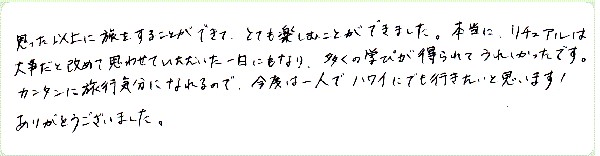 思った以上に旅をすることができて、とても楽しむことができました。本当に、リチュアルは
大事だと改めて思わせていただいた一日にもなり、多くの学びが得られてうれしかったです。
カンタンに旅行気分になれるので、今度は一人でハワイにでも行きたいと思います!
ありがとうございました。